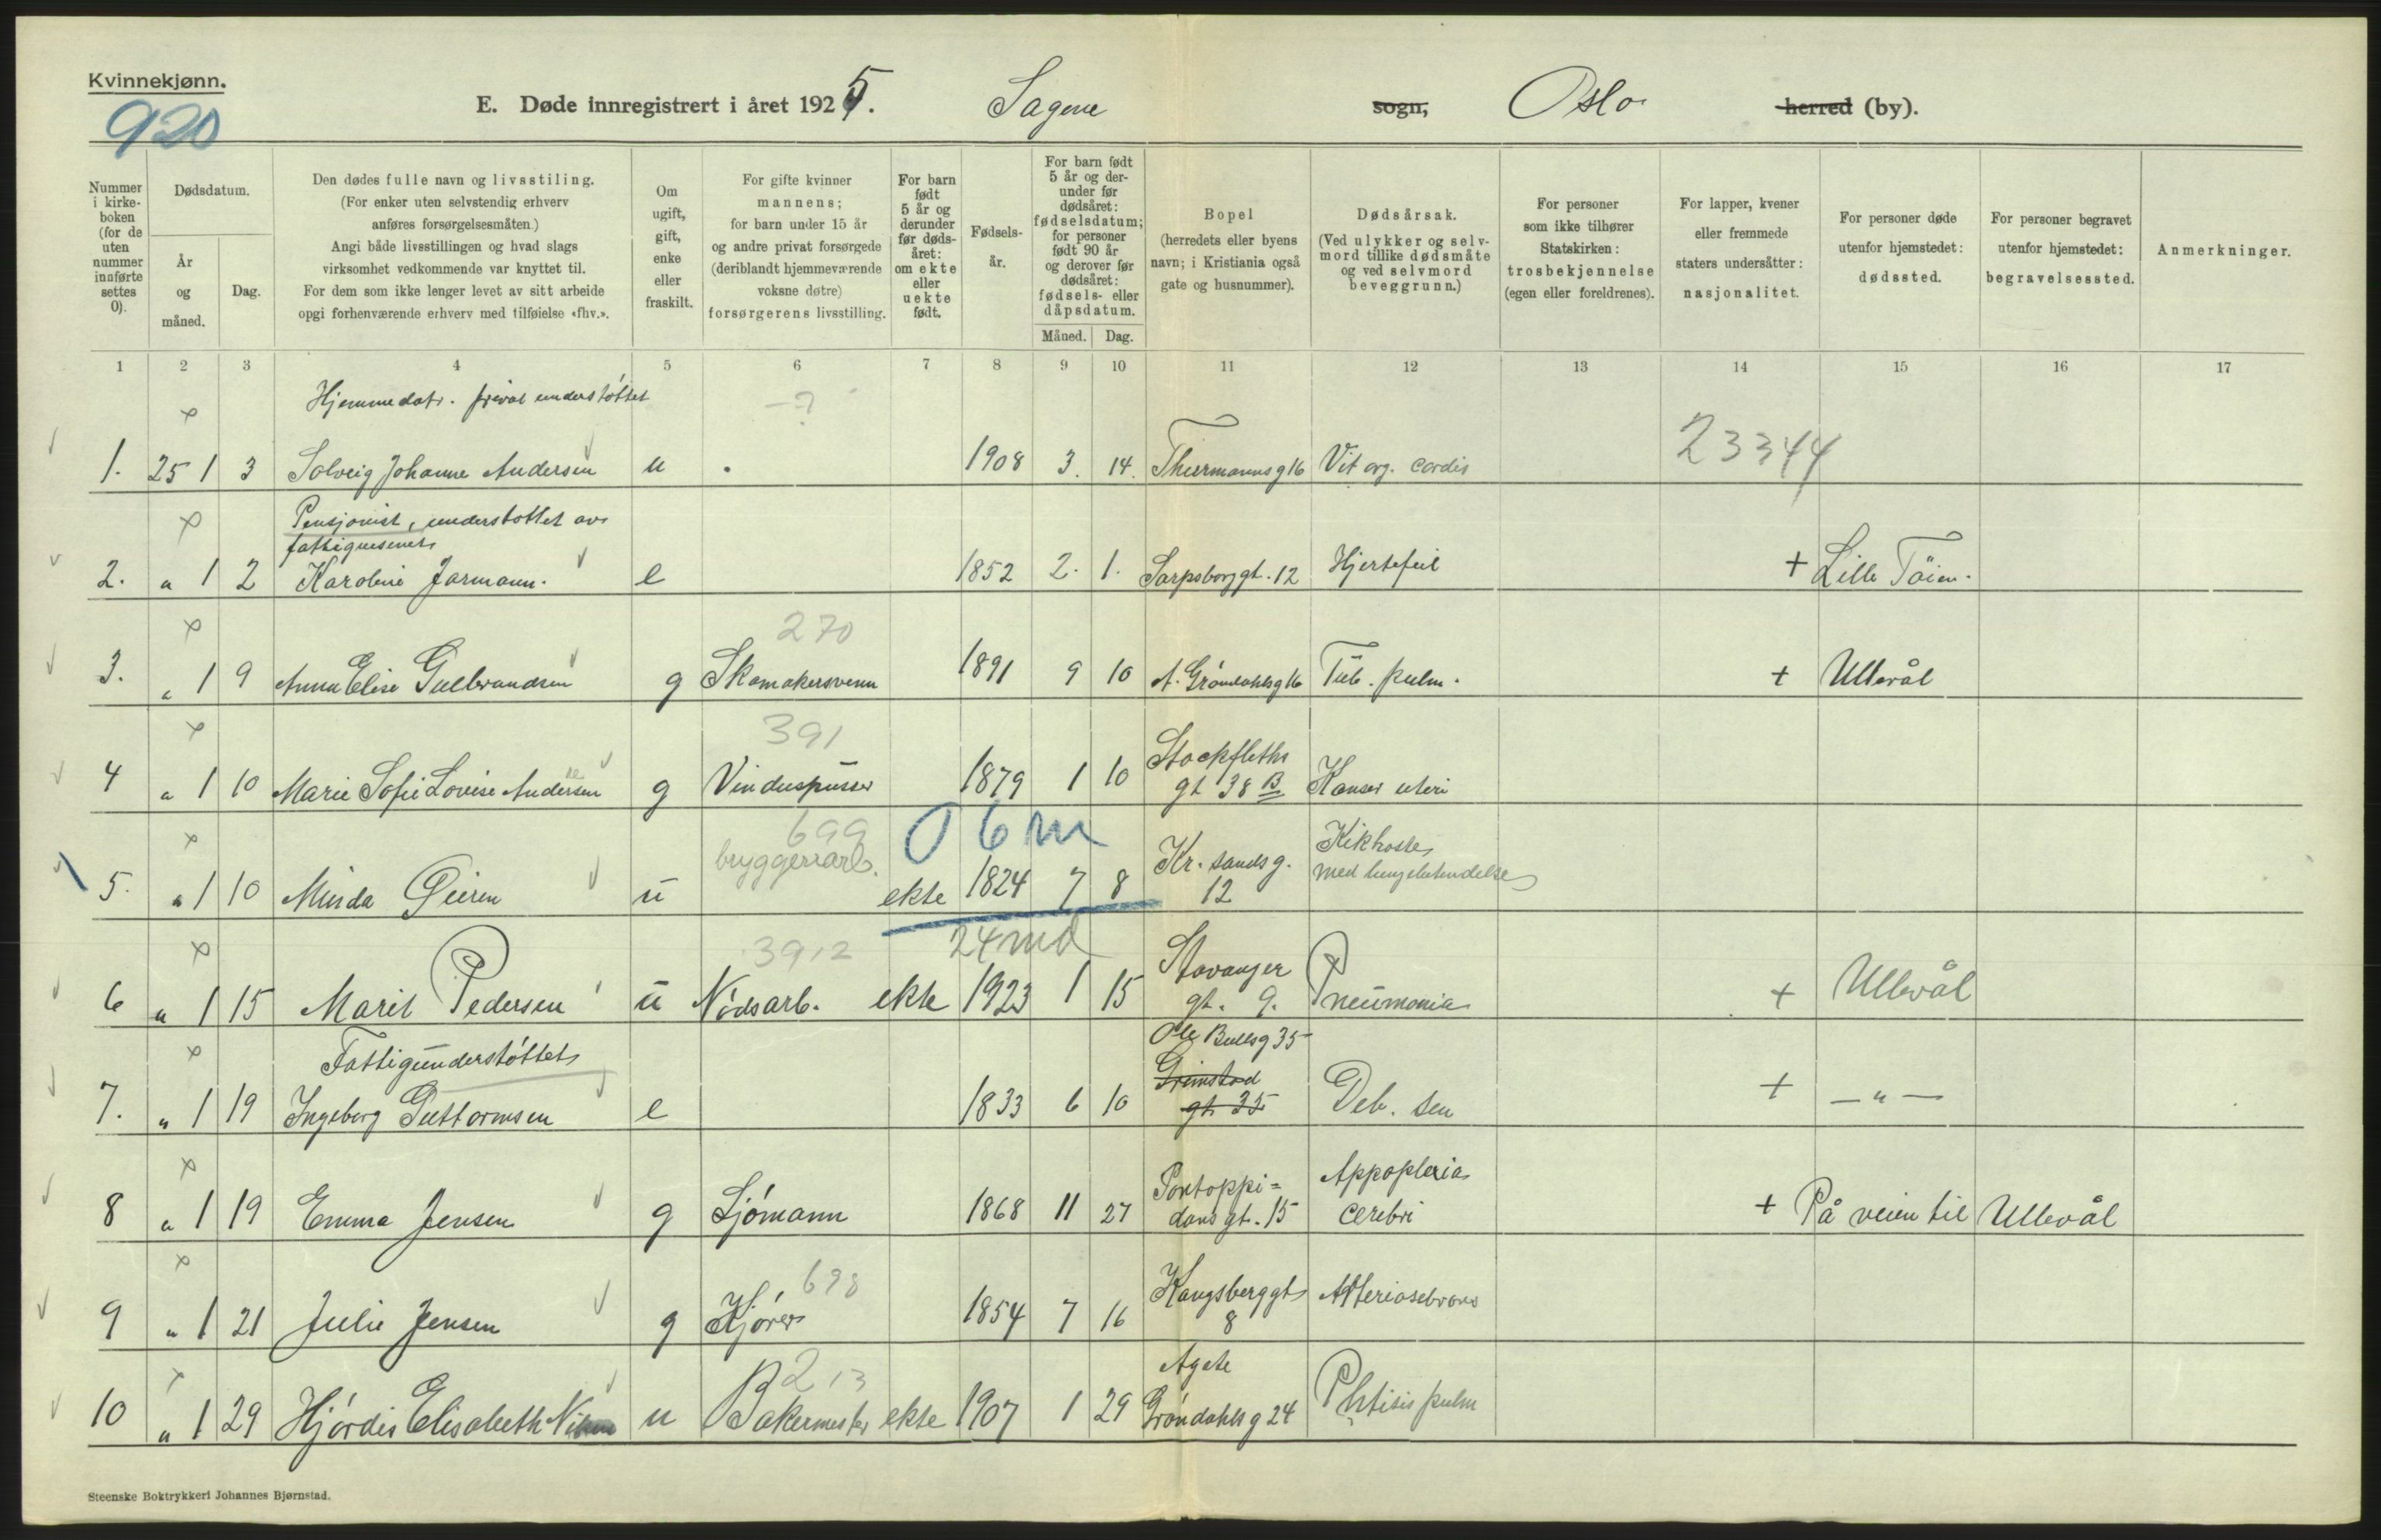 Kvinnekjønn.
920
E. Døde innregistrert i året 1925. Sagene sogn, Oslo herred (by).
Nummer i kirkeboken (for de uten nummer innførte settes 0).
Dødsdatum.
År og måned.
Dag.
Den dødes fulle navn og livsstiling.
(For enker uten selvstendig erhverv
anføres forsørgelsesmåten.)
Angi både livsstillingen og hvad slags
virksomhet vedkommende var knyttet til.
For dem som ikke lenger levet av sitt arbeide
opgi forhenværende erhverv med tilføielse «fhv.».
Om ugift, gift, enke eller fraskilt.
For gifte kvinner
mannens;
for barn under 15 år
og andre privat forsørgede
(deriblandt hjemmeværende
voksne døtre)
forsørgerens livsstilling.
For barn født 5 år og derunder før dødsåret: om ekte eller uekte født.
Fødselsår.
For barn født 5 år og derunder før dødsåret: fødselsdatum; for personer født 90 år og derover før dødsåret: fødsels- eller dåpsdatum.
Måned. Dag.
Bopel
(herredets eller byens
navn; i Kristiania også
gate og husnummer).
Dødsårsak.
(Ved ulykker og selvmord tillike dødsmåte
og ved selvmord
beveggrunn.)
For personer
som ikke tilhører
Statskirken:
trosbekjennelse
(egen eller foreldrenes).
For lapper, kvener
eller fremmede
staters undersåtter:
nasjonalitet.
For personer døde
utenfor hjemstedet:
dødssted.
For personer begravet
utenfor hjemstedet:
begravelsessted.
Anmerkninger.
1 2 3 4 5 6 7 8 9 10 11 12 13 14 15 16 17
Hjemmedatr. privat understøttet -?
1. 25 1 3 Solveig Johanne Andersen u 1908 3. 14. Thurmannsg 16 Vit org. cordis 23344
Pensjonist, understøttet av
fattigvesenet
2. " 1 2 Karoline Jarmann. e 1852 2. 1. Sarpsborggt. 12 Hjertefeil + Lille Tøien.
270
3. " 1 9 Anna Elise Gulbrandsen g Skomakersvenn 1891 9 10 A. Grøndahlsg 16 Tub. pulm. + Ullevål
391
4 " 1 10 Marie Sofie Lovise Andersen g Vinduspusser 1879 1 10 Stockfleths gt 38 B Kanser uteri
699 0 6 m
bryggeriarb.
5. " 1 10 Minda u ekte 1824 7 8 Kr. sandsg. 12 Kikhoste med lungebetendelse
3912 24 md
6 " 1 15 Marit Pedersen u Nødsarb. ekte 1923 1 15 Stavanger gt. 9. Pneumonia + Ullevål
Fattigunderstøttet Ole Bullsg 35
7. " 1 19 Ingeborg Guttormsen e 1833 6 10 Grimstad gt. 35 Deb. sen + — " —
8 " 1 19 Emma Jensen g Sjømann 1868 11 27 Pontoppidans gt. 15 Appoplexia cerebri + På veien til Ullevål
698
9 " 1 21 Julie Jensen g Kjører 1854 7 16 Kongsberggt 8
213
10 " 1 29 Hjørdis Elisabeth u Bakermester ekte 1907 1 29 Agate Grøndahls g 24 Phtisis pulm
Steenske Boktrykkeri Johannes Bjørnstad.